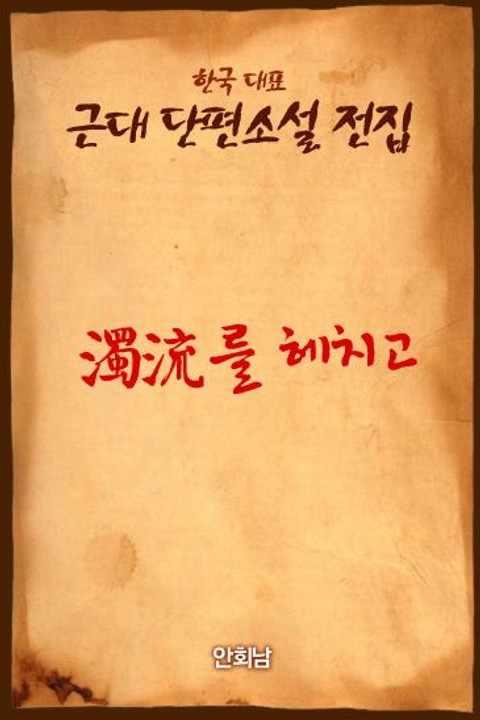 한국 대표
근대 단편소설 전집
濁流를 헤치고
안회남